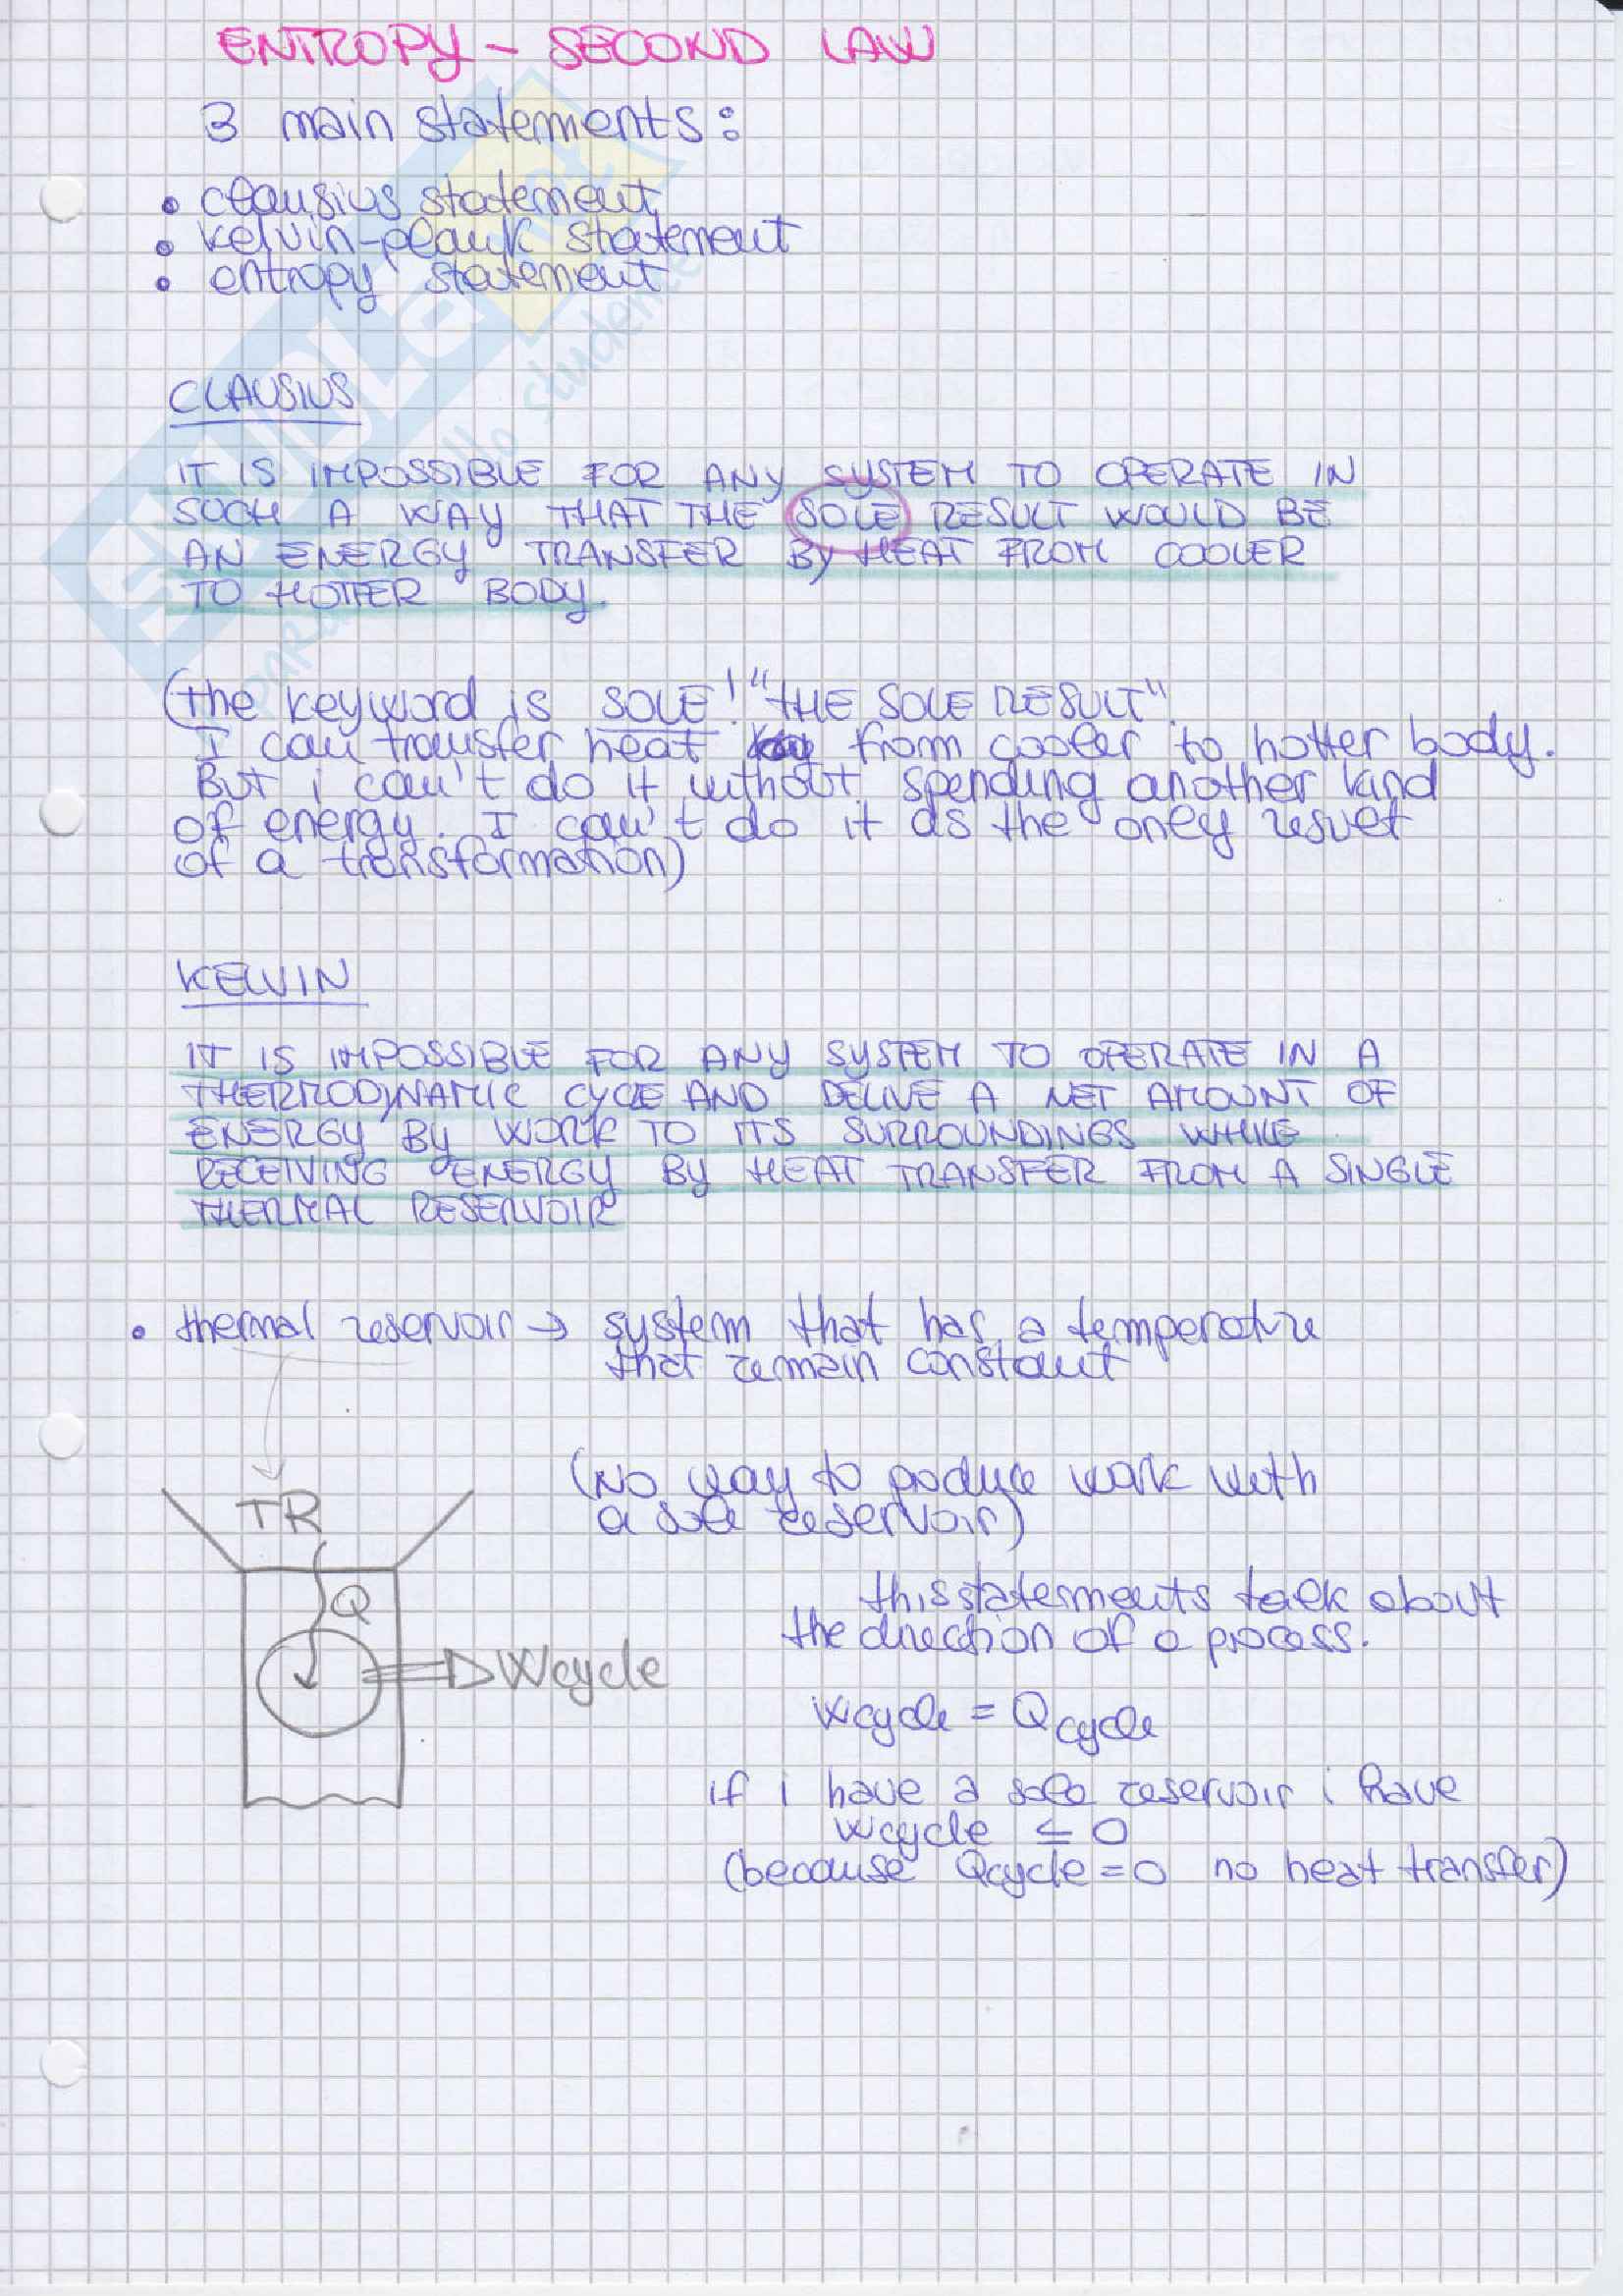 ENTROPY - SECOND LAW
3 main statements:
• clausius statement
• kelvin-plank statement
• entropy statement
CLAUSIUS
IT IS IMPOSSIBLE FOR ANY SYSTEM TO OPERATE IN
SUCH A WAY THAT THE SOLE RESULT WOULD BE
AN ENERGY TRANSFER BY HEAT FROM COOLER
TO HOTTER BODY.
(the keyword is SOLE! "THE SOLE RESULT".
I can transfer heat from cooler to hotter body.
But i can't do it without spending another kind
of energy. I can't do it as the only result
of a transformation)
KELVIN
IT IS IMPOSSIBLE FOR ANY SYSTEM TO OPERATE IN A
THERMODYNAMIC CYCLE AND DELIVE A NET AMOUNT OF
ENERGY BY WORK TO ITS SURROUNDINGS WHILE
RECEIVING ENERGY BY HEAT TRANSFER FROM A SINGLE
THERMAL RESERVOIR
• thermal reservoir → system that has a temperature
that remain constant
(No way to produce work with
a sole reservoir)
TR
Q
Wcycle
this statements talk about
the direction of a process.
Wcycle = Qcycle
if i have a sole reservoir i have
Wcycle ≤ 0
(because Qcycle = 0 no heat transfer)